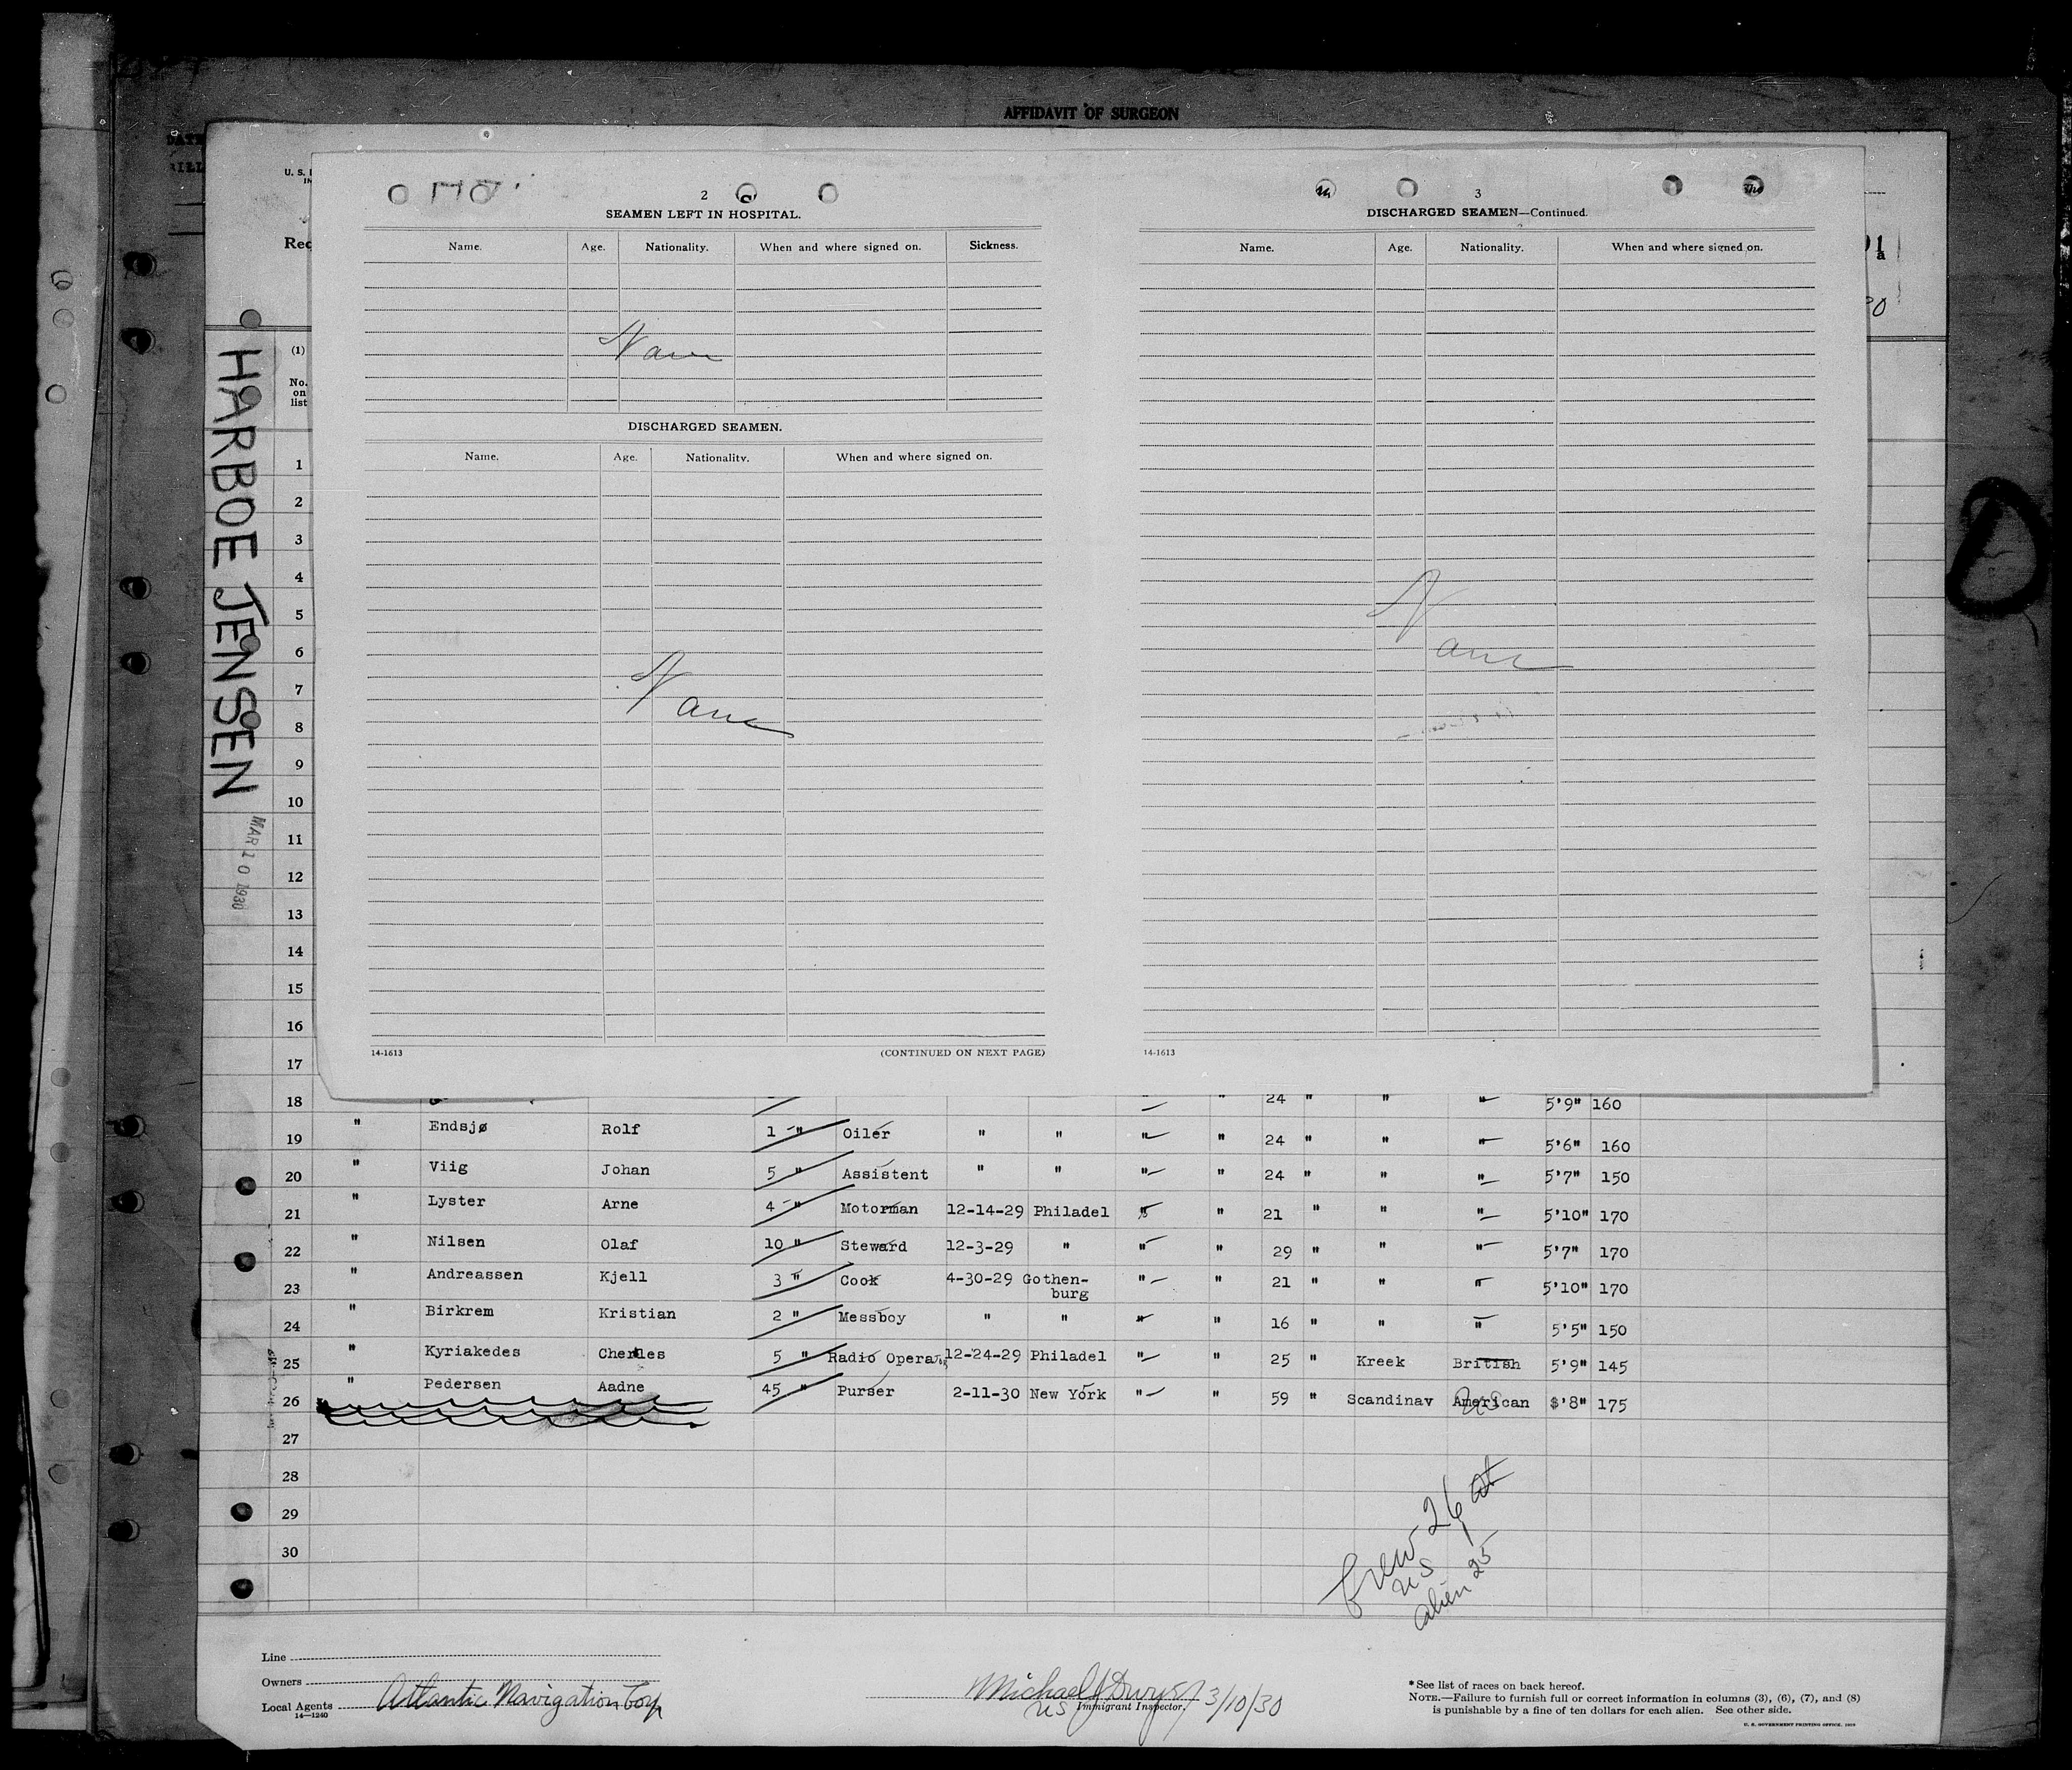 AFFIDAVIT OF SURGEON
U. S.
Rec
2
SEAMEN LEFT IN HOSPITAL.
Name. Age. Nationality. When and where signed on. Sickness.
None
DISCHARGED SEAMEN.
Name. Age. Nationality. When and where signed on.
None
14-1613 (CONTINUED ON NEXT PAGE)
3
DISCHARGED SEAMEN—Continued.
Name. Age. Nationality. When and where signed on.
None
14-1613
HARBOE JENSEN
MAR 10 1930
(1)
No.
on
list
1
2
3
4
5
6
7
8
9
10
11
12
13
14
15
16
17
18 24 " " " 5'9" 160
19 " Endsjø Rolf 1 " Oiler " " " " 24 " " " 5'6" 160
20 " Viig Johan 5 " Assistent " " " " 24 " " " 5'7" 150
21 " Lyster Arne 4 " Motorman 12-14-29 Philadel " " 21 " " " 5'10" 170
22 " Nilsen Olaf 10 " Steward 12-3-29 " " " 29 " " " 5'7" 170
23 " Andreassen Kjell 3 " Cook 4-30-29 Gothen- " " 21 " " " 5'10" 170
burg
24 " Birkrem Kristian 2 " Messboy " " " " 16 " " " 5'5" 150
25 " Kyriakedes Charles 5 " Radio Operator 12-24-29 Philadel " " 25 " Kreek British 5'9" 145
26 " Pedersen Aadne 45 " Purser 2-11-30 New York " " 59 " Scandinav American $'8" 175
US
27
28
29
30
Crew 26 at
US
alien 25
Line
Owners
Local Agents Atlantic Navigation Corp
14—1240
Michael J Dwyer 3/10/30
US Immigrant Inspector.
*See list of races on back hereof.
NOTE.—Failure to furnish full or correct information in columns (3), (6), (7), and (8)
is punishable by a fine of ten dollars for each alien. See other side.
U. S. GOVERNMENT PRINTING OFFICE, 1929